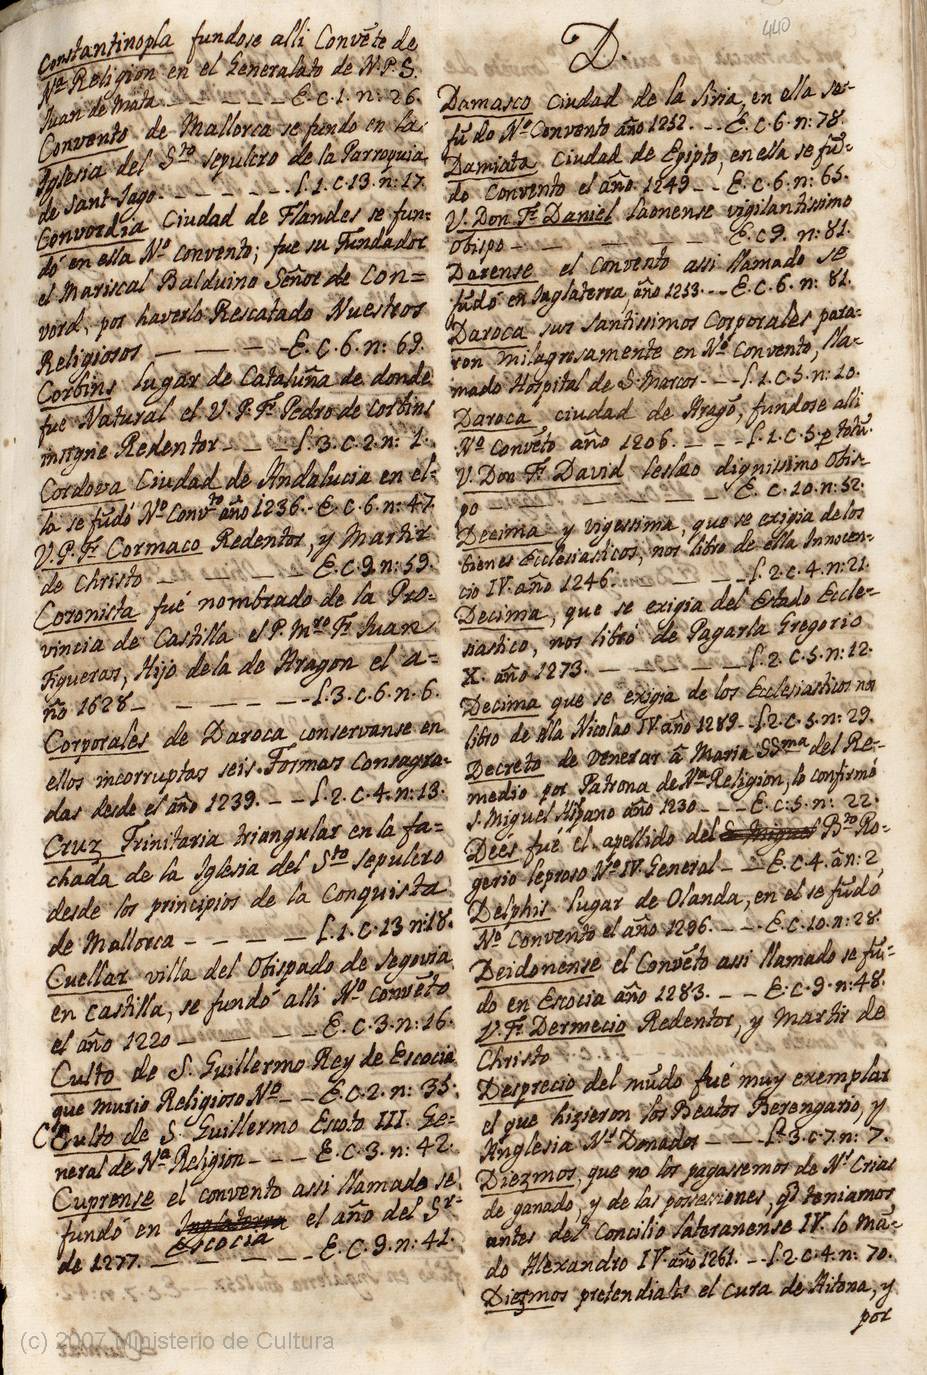 440
Constantinopla fundose alli Convēte de
Nª Religion en el Generalato de N.P.S.
Juan de Mata - - - - - E.C.1. n: 26.
Convento de Mallorca se fundo en la
Iglesia del Sto sepulcro de la Parroquia
de Sant-Jago - - - - - - l.1.C.13.n:17.
Convordia Ciudad de Flandes se fun=
dó en ella Nº Convento; fue su Fundador
el Mariscal Balduino Señor de Con=
vord, por haverlo Rescatado Nuestros
Religiosos - - - - - E.C.6.n: 69.
Corbins lugar de Cataluña de donde
fue Natural el V.P.Fr. Pedro de Corbins
insigne Redentor - - - l.3.C.2.n: 1.
Cordova Ciudad de Andalucia en el-
la se fūdó Nº Convto año 1236. - E.C.6.n: 47.
V.P.Fr. Cormaco Redentor, y Martir
de Christo - - - - - E.C.9.n: 59.
Coronista fué nombrado de la Pro-
vincia de Castilla el P. Mro Fr. Juan
Figueras, Hijo de la de Aragon el a=
ño 1628 - - - - - - l.3.C.6.n.6.
Corporales de Daroca conservanse en
ellos incorruptas seis Formas Consagra-
das desde el año 1239. - - l.2.C.4.n:13.
Cruz Trinitaria triangular en la fa=
chada de la Iglesia del Sto sepulcro
desde los principios de la Conquista
de Mallorca - - - - - l.1.C.13 n:18.
Cuellar villa del Obispado de Segovia
en Castilla, se fundó alli Nº Convēto
el año 1220 - - - - - E.C.3.n:16.
Culto de S. Guillermo Rey de Escocia
que murio Religioso Nº - - E.C.2. n: 35.
Culto de S. Guillermo Escoto III. Ge-
neral de Nª Religion - - - E.C.3.n: 42.
Cuprense el convento assi llamado se
fundó en Inglaterra el año del Sr.
Escocia
de 1277. - - - - - E.C.9.n: 41.
D.
Damasco Ciudad de la Siria, en ella se-
fūdo Nº Convento año 1252. - - E.C.6.n: 78.
Damiata Ciudad de Egipto, en ella se fū-
do Convento el año 1249 - - E.C.6.n: 65.
V. Don Fr. Daniel Laonense vigilantissimo
Obispo - - - - - - E.C.9. n: 81.
Darense el Convento assi llamado se
fūdó en Inglaterra, año 1253. - - E.C.6.n: 81.
Daroca sus santissimos Corporales para=
ron milagrosamente en Nº Convento, lla-
mado Hospital de S. Marcos - - - l.1.C.5.n:10.
Daroca ciudad de Aragō, fundose alli
Nº Convēto año 1206. - - - l.1.C.5. p totū.
V. Don Fr. David dignissimo Obis-
po - - - - - - E.C.10.n:52.
Decima y vigessima, que se exigia de los
bienes Ecclesiasticos, nos libro de ella Innocen-
cio IV. año 1246. - - - - l.2.C.4.n:21.
Decima, que se exigia del Estado Eccle-
siastico, nos libró de Pagarla Gregorio
X. año 1273. - - - - - - l.2.C.5.n:12.
Decima que se exigia de los Ecclesiasticos nos
libro de ella Nicolao IV. año 1289 - l.2.C.5.n: 29.
Decreto de Venerar á Maria SSma del Re-
medio por Patrona de Nra Religion, lo confirmó
S. Miguel Hispano año 1230 - - - E.C.5.n: 22.
Deés fué el apellido del S. Miguel Bto Ro-
gerio leproso Nº IV. General - - E.C.4. n: 2
Delphis lugar de Olanda, en el se fūdó
Nº Convento el año 1296. - - - E.C.10.n:28.
Deidonense el Convēto assi llamado se fū-
do en Escocia año 1283. - - E.C.9.n:48.
V. Fr. Dermecio Redentor, y Martir de
Christo
Desprecio del mūdo fué muy exemplar
el que hizieron los Beatos Berengario, y
Anglesia Ns Donados - - - l.3.C.7.n: 7.
Diezmos, que no los pagassemos de Ns Crias
de ganado, y de las possessiones, q̄ teniamos
antes del Concilio lateranense IV. lo mā-
do Alexandro IV. año 1261. - l.2.C.4.n: 70.
Diezmos pretendia les el cura de Aitona, y
por
(c) 2007 Ministerio de Cultura